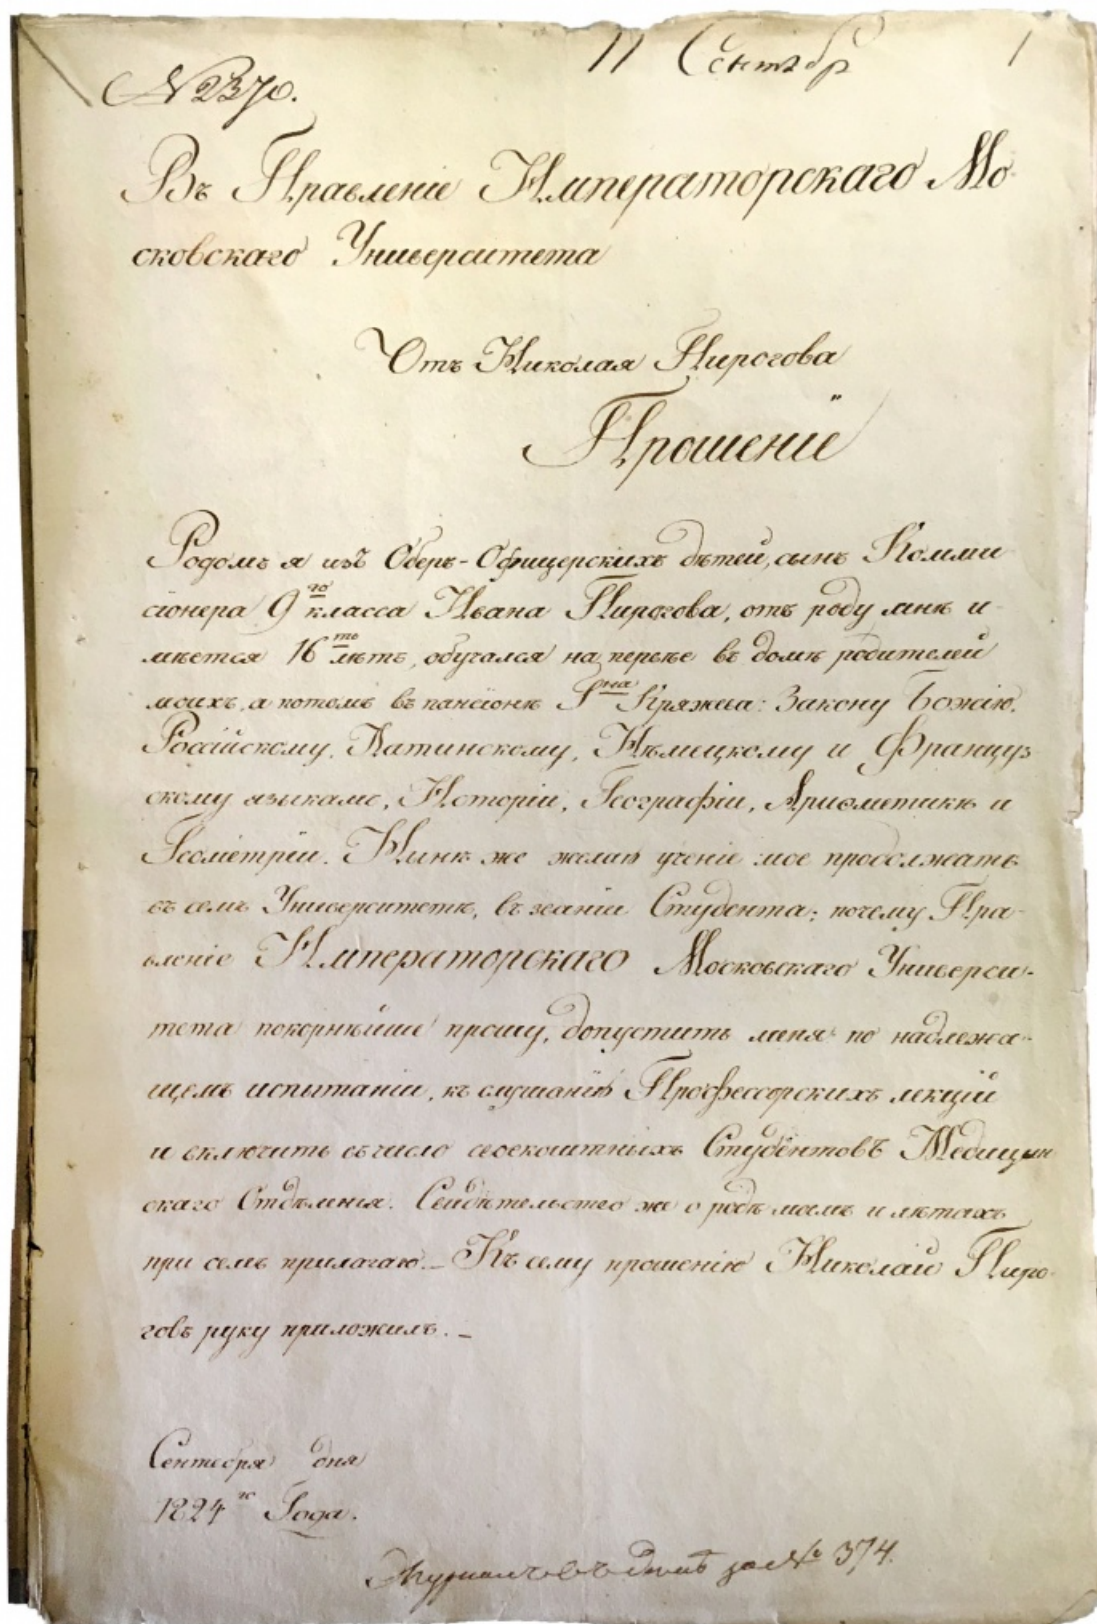 11 Сентябр 1
№ 2370.
Въ Правленіе Императорскаго Мо-
сковскаго Университета
Отъ Николая Пирогова
Прошеніе
Родомъ я изъ Оберъ-Офицерскихъ дѣтей, сынъ Комми
сіонера 9го класса Ивана Пирогова, отъ роду мнѣ и-
мѣется 16ть лѣтъ, обучался на перьве въ домѣ родителей
моихъ, а потомъ въ пансіонѣ Гна Кряжева: Закону Божію,
Россійскому, Латинскому, Нѣмецкому и Француз
скому языкамъ, Исторіи, Географіи, Ариѳметикѣ и
Геометріи. Нынѣ же желая ученіе мое продолжать
въ семъ Университетѣ, въ званіи Студента; почему Пра-
вленіе Императорскаго Московскаго Универси-
тета покорнѣйше прошу, допустить меня по надлежа-
щемъ испытаніи, къ слушанію Профессорскихъ лекцій
и включить въ число своекоштныхъ Студентовъ Медицин
скаго Отдѣленія. Свидѣтельство же о родѣ моемъ и лѣтахъ
при семъ прилагаю. – Къ сему прошенію Николай Пиро-
говъ руку приложилъ. –
Сентября дня
1824го Года.
№ 374.